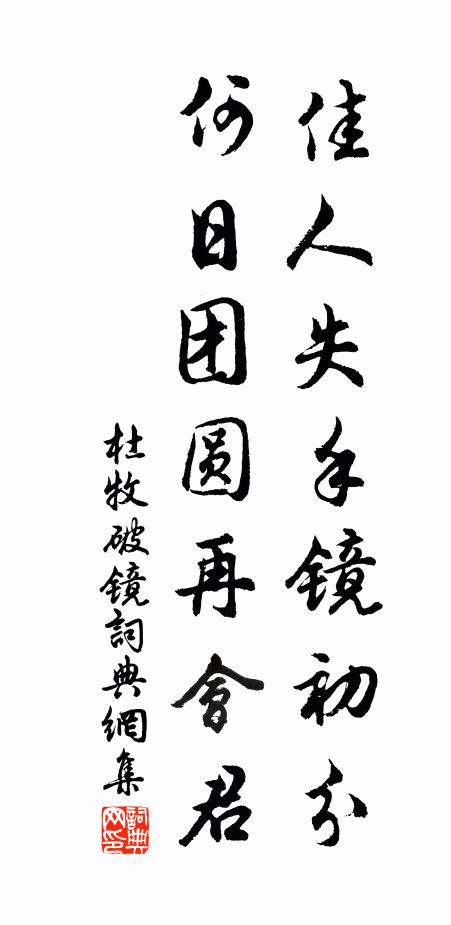 佳人失手镜初分
何日团圆再會君
杜牧破镜詞典網集
詞典网印